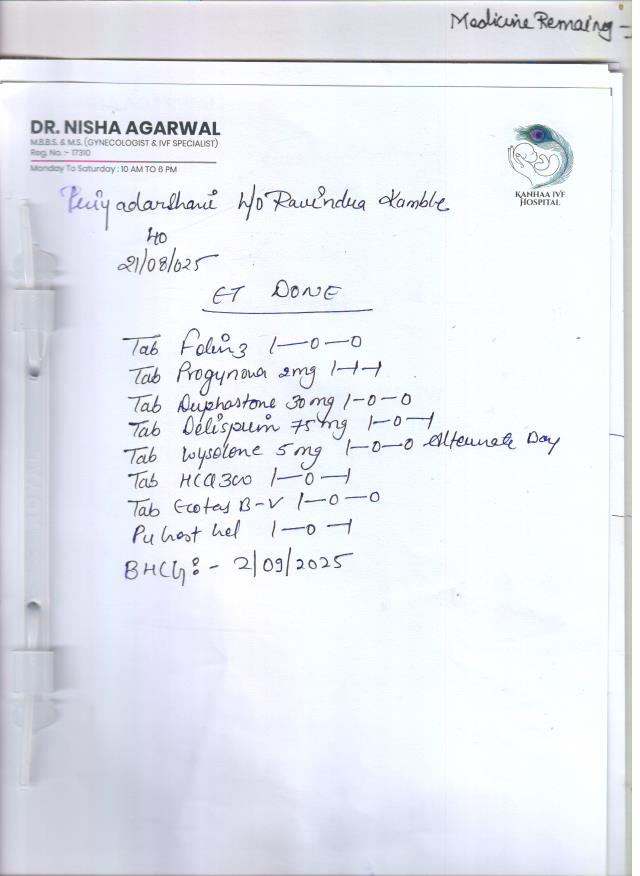 Medicine Remaing -
DR. NISHA AGARWAL
M.B.B.S. & M.S. (GYNECOLOGIST & IVF SPECIALIST)
Reg. No.:- 17310
Monday To Saturday : 10 AM TO 6 PM
KANHAA IVF
HOSPITAL
Priyadarshani h/o Ravindra Kamble
40
21/08/025
ET DONE
Tab 1-0-0
Tab Progynova 2mg 1-1-1
Tab Duphastone 30 mg 1-0-0
Tab Delisprin 75 mg 1-0-1
Tab Wysolone 5 mg 1-0-0 Alternate Day
Tab HCQ 300 1-0-1
Tab B-V 1-0-0
1-0-1
BHCG:- 2/09/2025